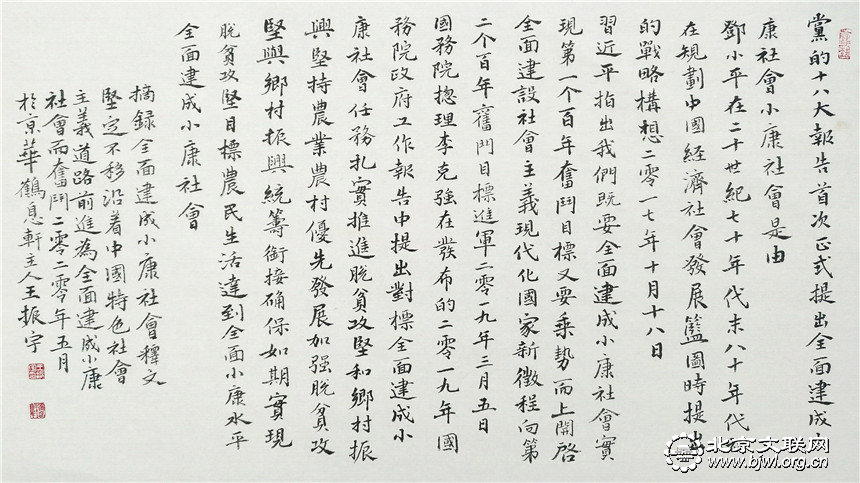 黨的十八大報告首次正式提出全面建成小
康社會小康社會是由
鄧小平在二十世紀七十年代末八十年代初
在規劃中國經濟社會發展籃圖時提出
的戰略構想二零一七年十月十八日
習近平指出我們既要全面建成小康社會實
現第一个百年奮鬥目標又要乘勢而上開啓
全面建設社會主義現代化國家新徵程向第
二个百年奮鬥目標進軍二零一九年三月五日
國務院揔理李克強在發布的二零一九年國
務院政府工作報告中提出對標全面建成小
康社會任務扎實推進脫貧攻堅和鄉村振
興堅持農業農村優先發展加强脫貧攻
堅與鄉村振興統籌銜接确保如期實現
脫貧攻堅目標農民生活達到全面小康水平
全面建成小康社會
摘録全面建成小康社會釋文
堅定不移沿着中國特色社會
主義道路前進為全面建成小康
社會而奮鬥二零二零年五月
於京華鶴息軒主人王振宇
北京文联网
www.bjwl.org.cn